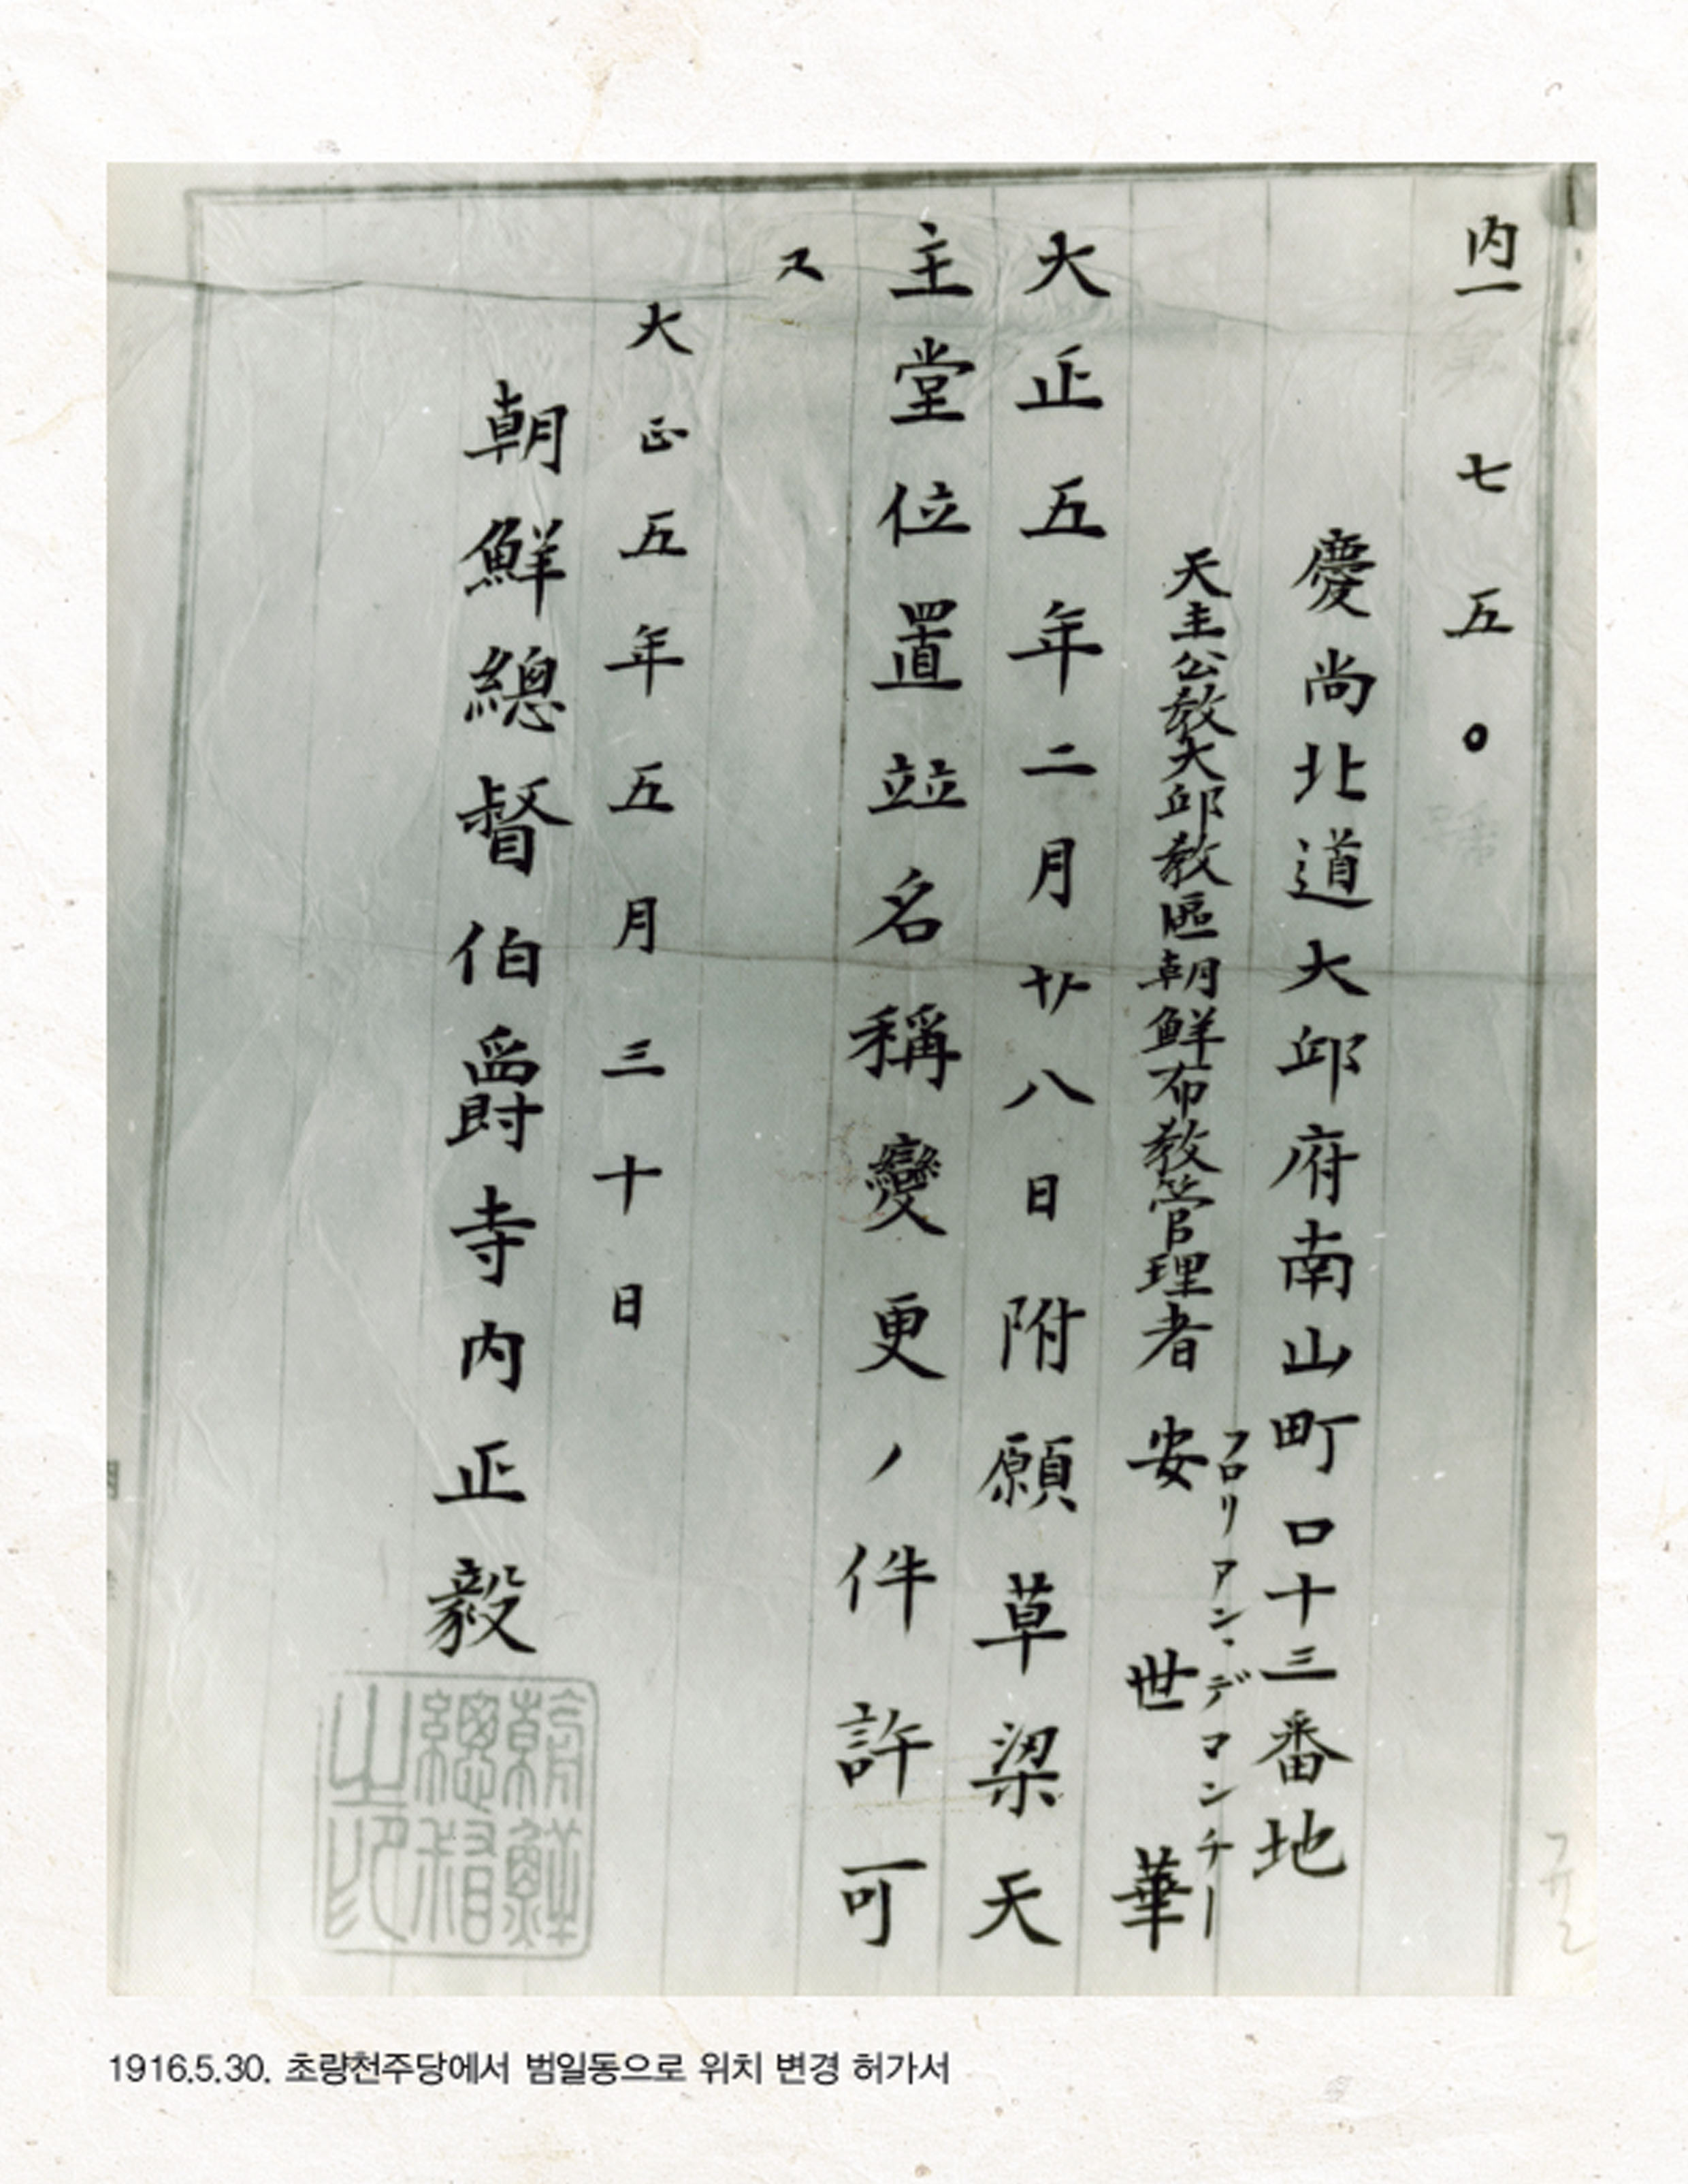 内一第七五〇號
慶尚北道大邱府南山町口十三番地
天主公敎大邱敎區朝鮮布敎管理者 安世華
フロリアン・デマンヂー
大正五年二月廿八日附願草梁天
主堂位置竝名稱變更ノ件許可
ス
大正五年五月三十日
朝鮮總督伯爵寺内正毅
朝鮮
總督
之印
1916.5.30. 초량천주당에서 범일동으로 위치 변경 허가서